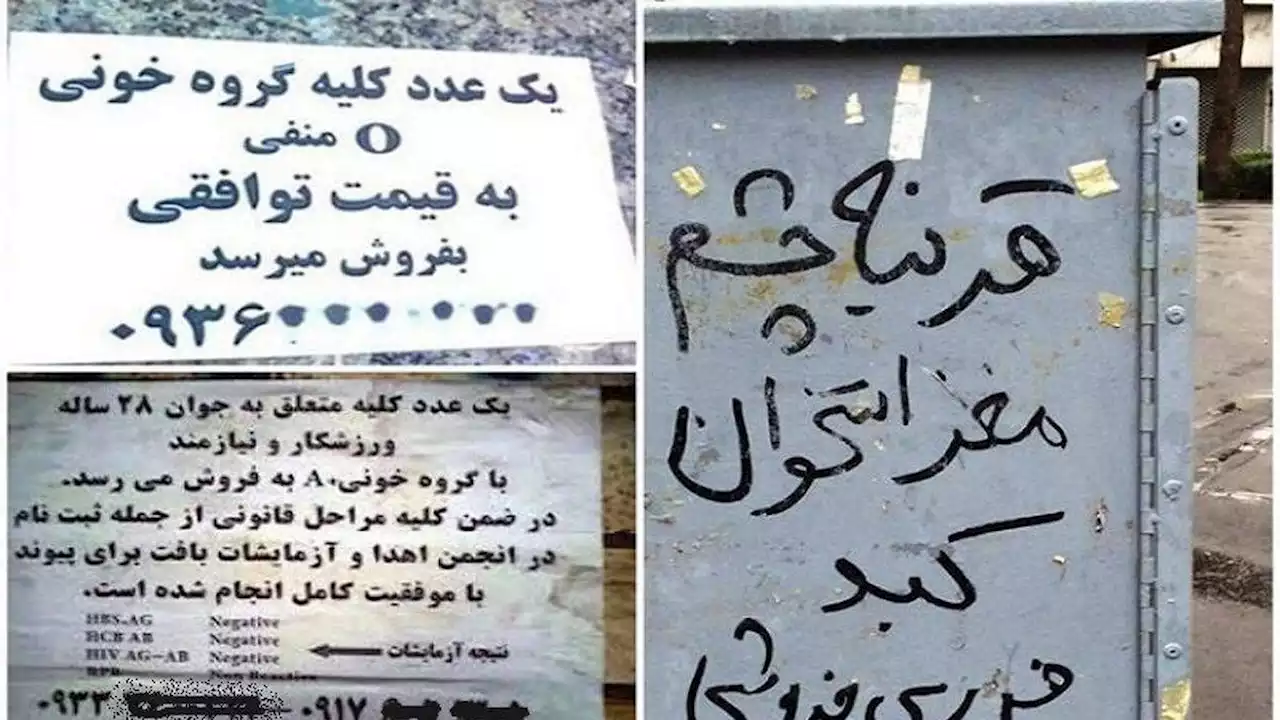 یک عدد کلیه گروه خونی
O منفی
به قیمت توافقی
بفروش میرسد
۰۹۳۶
یک عدد کلیه متعلق به جوان ۲۸ ساله
ورزشکار و نیازمند
با گروه خونی A+ به فروش می رسد.
در ضمن کلیه مراحل قانونی از جمله ثبت نام
در انجمن اهدا و آزمایشات بافت برای پیوند
با موفقیت کامل انجام شده است.
HBS.AG Negative
HCB AB Negative
HIV AG-AB Negative
نتیجه آزمایشات
۰۹۳۳ ۰۹۱۷
قرنیه چشم
مغز استخوان
کبد
فروشی